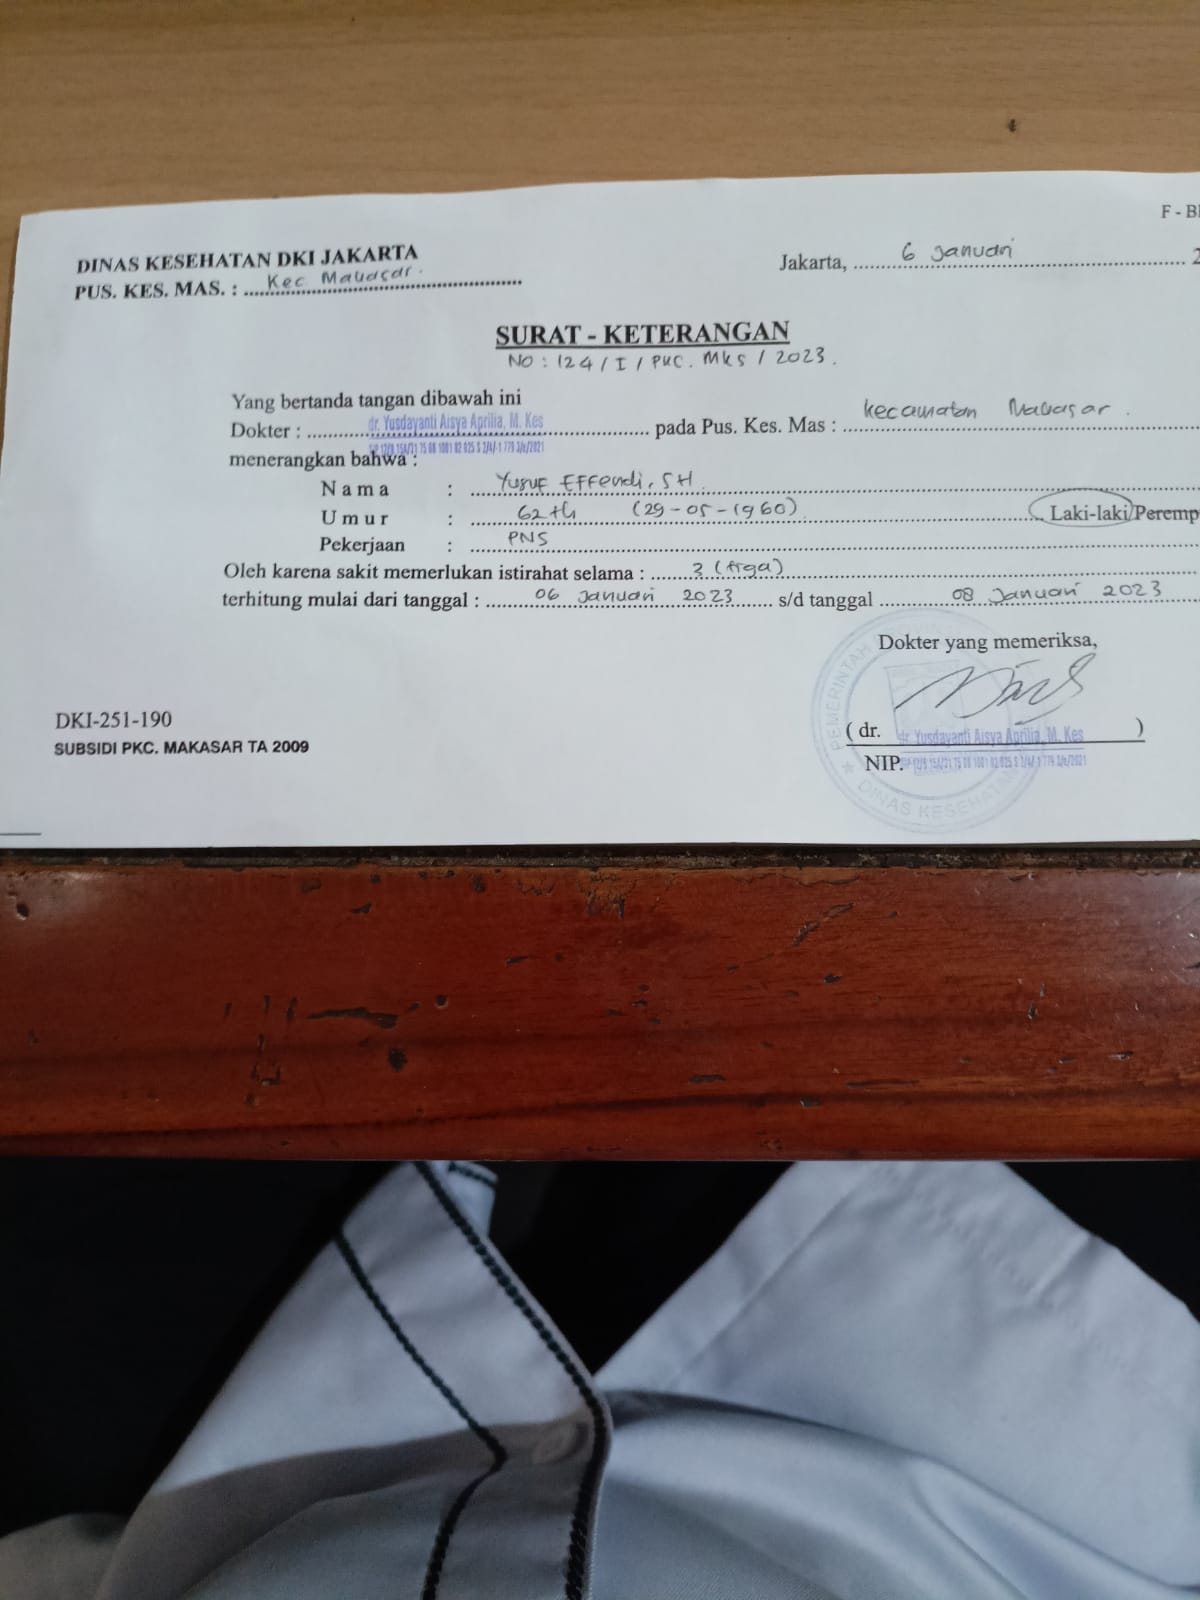 F - B
DINAS KESEHATAN DKI JAKARTA
Jakarta, 6 Januari 2
PUS. KES. MAS. : Kec Makasar.
SURAT - KETERANGAN
NO : 124 / I / PKC. MKS / 2023.
Yang bertanda tangan dibawah ini
Dokter : dr. Yusdayanti Aisya Aprilia, M. Kes pada Pus. Kes. Mas : Kecamatan Makasar.
menerangkan bahwa :
Nama : Yusuf Effendi, SH
Umur : 62 th (29-05-1960) Laki-laki/Peremp
Pekerjaan : PNS
Oleh karena sakit memerlukan istirahat selama : 3 (tiga)
terhitung mulai dari tanggal : 06 Januari 2023 s/d tanggal 08 Januari 2023
Dokter yang memeriksa,
PEMERINTAH
(dr. dr. Yusdayanti Aisya Aprilia, M. Kes )
NIP.
DINAS KESEHATAN
DKI-251-190
SUBSIDI PKC. MAKASAR TA 2009